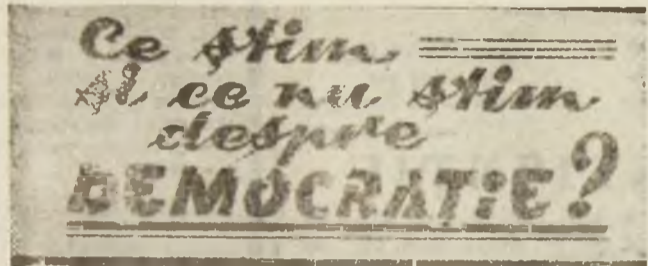 Ce știm
și ce nu știm
despre
DEMOCRAȚIE?